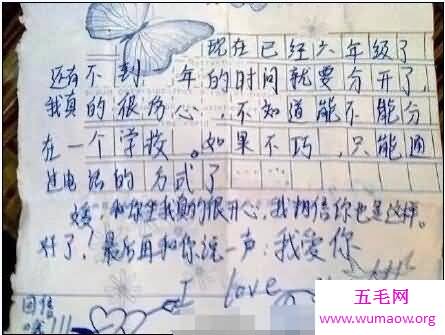 现在已经六年级了
还有不到一年的时间就要分开了,
我真的很伤心,不知道能不能分
在一个学校。如果不巧,只能通
过电话的方式了……
和你坐我真的很开心,我相信你也是这样。
好了!最后再和你说一声:我爱你
I love
回信
五毛网
www.wumaow.org